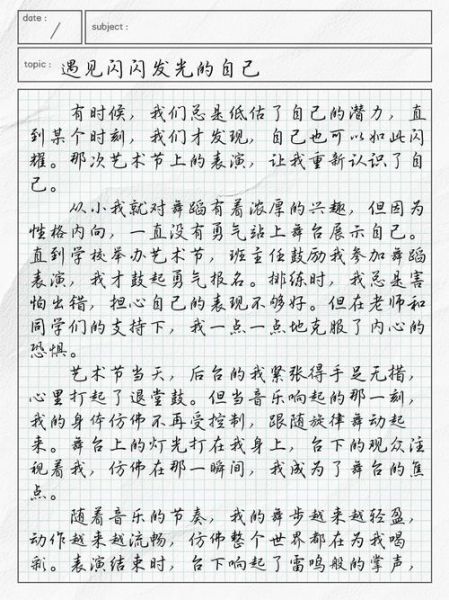 date :
/
subject :
topic : 遇见闪闪发光的自己
有时候，我们总是低估了自己的潜力，直
到某个时刻，我们才发现，自己也可以如此闪
耀。那次艺术节上的表演，让我重新认识了自
己。
从小我就对舞蹈有着浓厚的兴趣，但因为
性格内向，一直没有勇气站上舞台展示自己。
直到学校举办艺术节，班主任鼓励我参加舞蹈
表演，我才鼓起勇气报名。排练时，我总是害
怕出错，担心自己的表现不够好。但在老师和
同学们的支持下，我一点一点地克服了内心的
恐惧。
艺术节当天，后台的我紧张得手足无措，
心里打起了退堂鼓。但当音乐响起的那一刻，
我的身体仿佛不再受控制，跟随旋律舞动起
来。舞台上的灯光打在我身上，台下的观众注
视着我，仿佛在那一瞬间，我成为了舞台的焦
点。
随着音乐的节奏，我的舞步越来越轻盈，
动作越来越流畅，仿佛整个世界都在为我喝
彩。表演结束时，台下响起了雷鸣般的掌声，